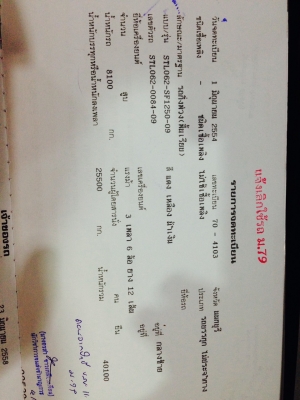 แจ้งเลิกใช้รถ ม.79
รายการจดทะเบียน
วันจดทะเบียน 1 มิถุนายน 2554 เลขทะเบียน 70 - 4103 จังหวัด นนทบุรี
ชนิดเชื้อเพลิง - ชนิดเชื้อเพลิง ไม่ใช้เชื้อเพลิง ประเภท รถบรรทุก ไม่ประจำทาง
ลักษณะ/มาตรฐาน รถกึ่งพ่วง(พื้นเรียบ) ยี่ห้อรถ
แบบ/รุ่น STL062-SF1250-09 สี แดง เหลือง น้ำเงิน
เลขตัวรถ STL062-0084-09 อยู่ที่ กลางซ้าย
ยี่ห้อเครื่องยนต์ เลขเครื่องยนต์ อยู่ที่
จำนวน สูบ แรงม้า 3 เพลา 6 ล้อ ยาง 12 เส้น
น้ำหนักรถ 8100 กก. จำนวนผู้โดยสารนั่ง คน ยืน
น้ำหนักบรรทุกหรือน้ำหนักลงเพลา 25500 กก. น้ำหนักรวม 40100
ม.79
เจ้าของรถ
2558